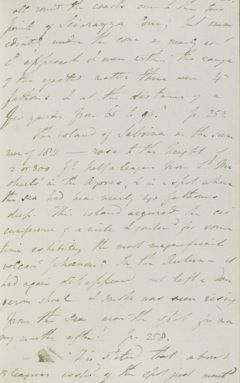 all round the coasts
point of Sciarazza Cone; but imm
ediately under the cone as nearly as
I approach I was within the range
of the ejected matter there were 45
fathoms & at the distance of a
few yards from 65 to 90. p. 252
The island of Sabrina in the sum
mer of 1811 — rose to the height of
half a league from St Mi
chaels in the Azores, & in a spot where
the sea had been nearly 40 fathoms
deep. This island acquired the cir
cumference of a mile & continued for some
time exhibiting the most magnificent
volcanic phenomena. In the
had again disappeared and left a dan
gerous shoal & smoke was seen rising
from the sea near the spot for ma
ny months after. p. 258.
This states that about
leagues of the spot just ment